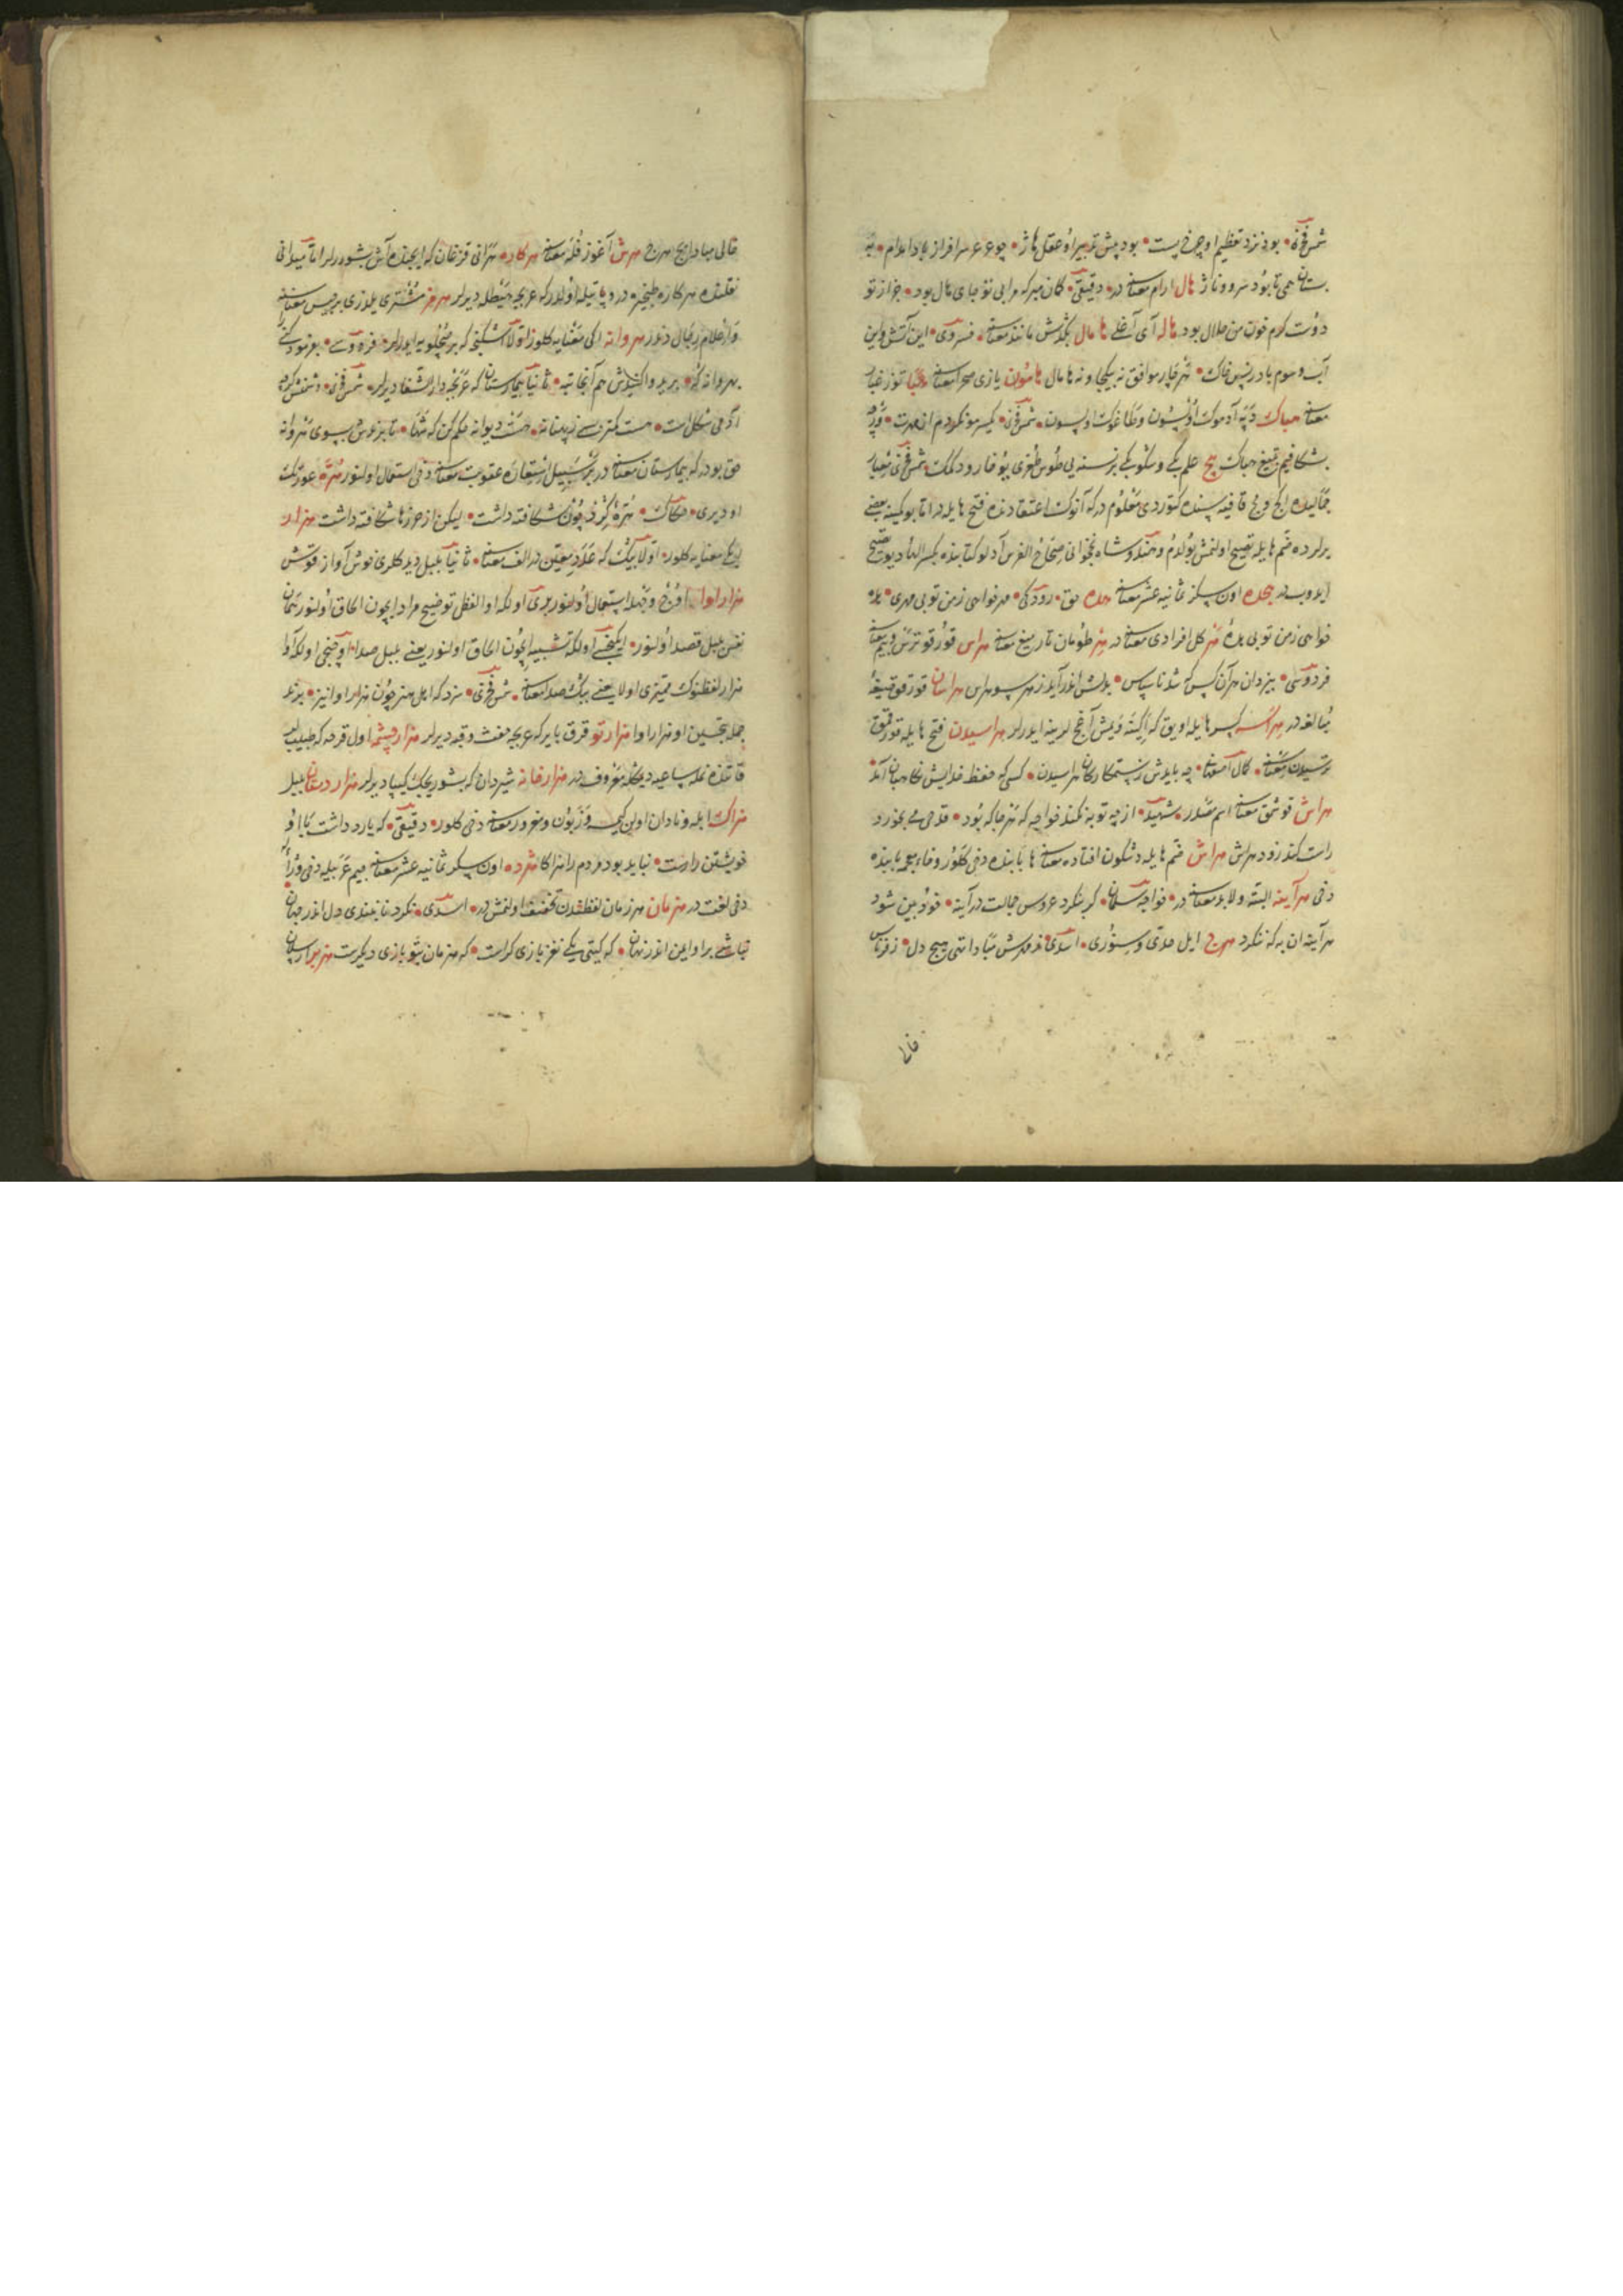 شمس فخری بود نزد تعظیم او چرخ پست بود پیش تدبیر او عقل هاژ چو عرعر سرافراز بادا مدام به
بستان همی تا بود سرو و ناژ هال ارام معناسنه در دقیقی کمان مبر که مرا بی تو جای هال بود جز از تو
دوست کرم خون من حلال بود هاله آی آغلی هامال بکدش مانند معناسنه خسروی این آتش و این
آب و سوم باد در پس خاک هر چار موافق نه بیکجا و نه هامال هامون یازی صحرا معناسنه هبا توز غبار
معناسنه هباک دپه آدموک اوستون و طاغوک اوستون شمس فخری
شکافیم بتیغ هباک هج علم کبی و سکو کبی بر نسنه یی طوس طوغری یوقارو دکمک شمس فخری معیار
جمالیده کج و مج قافیه سنده کتوردی معلوم در که آنوک اعتقادنده فتح هایله در اتا بو کمینه بعضی
یرلرده ضم هایله تصحیح اولنمش بولدم و هندوشاه نخجوانی صحاح الفرس آدلو کتابنده بکسر الهاء دیو تصحیح
ایدوب در هجده اون سکز ثمانیه عشر معناسنه هده حق رودکی مهر خواهی ز من تو بی مهری هده
خواهی ز من تو بی هده هر کل افرادی معناسنه در هر طومان تاریغ معناسنه هراس قورقو ترس و بیم معناسنه
فردوسی بیزدان هر آن کس که شد ناسپاس بدلش اندر آید ز هر سو هراس هراسان قورقوقیغه
مبالغه در هراسه کسر هایله اویق که اکینه و یمش آغجلرینه ایدرلر هراسیدن فتح هایله قورقمق
ترسیدن معناسنه کمال اسمعیل چه بایدش ز ستمکارکان هراسیدن کسی که حفظ خدایش نگاهبان آمد
هراش قوسمق معناسنه اسم مصدر شهید از چه توبه نکند خواجه که هر جا که بود قدحی می بخورد
راست کند زود هراش هراش ضم هایله دشکون افتاده معناسنه ها بابنده دخی کلور و خاء معجمه بابنده
دخی هرآینه البته و لابد معناسنه در خواجه سلمان کر بنکرد عروس جمالت در آینه خود بین شود
هرآینه ان به که ننکرد هرج ایل حلاق و سنوری اسدی ز هرش مبادا تهی هیچ دل ز فرمانش
خالی
خالی مبادا هیچ هرج هرش آغوز قله معناسنه هرکاره هرانی قزغان که ایچنده آش بشورر لر اتا میدانی
نقلنده هرکاره طنجره در و پاتیله اولدر که عربجه هیطله دیرلر هرمز مشتری یلدزی برجیس معناسنه
و اعلام رجال دندر هروانه ایکی معنایه کلور اولا اشکنجه که بر صوچلویه ایدرلر فردوسی بفرمود کش
بهروانه که برید و آکنیدش هم آنجا تبه ثانیا بیمارستان که عربجه دار الشفا دیرلر شمس فخری دشمنش کرچه
آدمی شکل است هست کمتر بسی ز دیوانه هست دیوانه حکم کن که شها تا برندش بسوی هروانه
حق بو در که بیمارستان معناسنه در بر سبیل استعاره عقوبت معناسنه دخی استعمال اولنور هره عورتک
او دیری حکاک هره نرم چون شکافته داشت لیکن از حرزها شکافته داشت هزار
ایکی معنایه کلور اولا بیک که عدد معین در الف معناسنه ثانیا بلبل دیدکلری خوش آواز قوش
هزار اوا اوج وجهله استعمال اولنور بری اولکه اوا لفظی توضیح مراد ایچون الحاق اولنور همان
نفس بلبل قصد اولنور ایکنجی اولکه تشبیه ایچون الحاق اولنور یعنی بلبل صدا اوچنجی اولکه اوا
هزار لفظنوک ممیزی اولا یعنی بیک صدا معناسنه شمس فخری سزد که اهل هنر چون هزار اوا نیز بزند
جمله بتحسین او هزار اوا هزار تو قرق بایر که عربجه حفث و قبه دیرلر هزار چشمه اول قرحه که طبیبلر
قاتنده نمله ساعیه دیمکله معروف در هزار خانه شیردان که بشوریجک کیپا دیرلر هزار دستان بلبل
هزاک ابله و نادان اولن کمسه و زبون و مغرور معناسنه دخی کلور دقیقی که یارد داشت با او
خویشتن راست نباید بود مردم را هزاکا هژده اون سکز ثمانیه عشر معناسنه جیم عربیله دخی
دخی لغت در هزمان هر زمان لفظندن تخفیف اولنمشدر اسدی نکر تا نبندی دل اندر جهان
نباشی براو ایمن اندر نهان که کیتی یکی نغز بازی کراست که هزمان بنو بازی دیکرست هزبر ارسلان